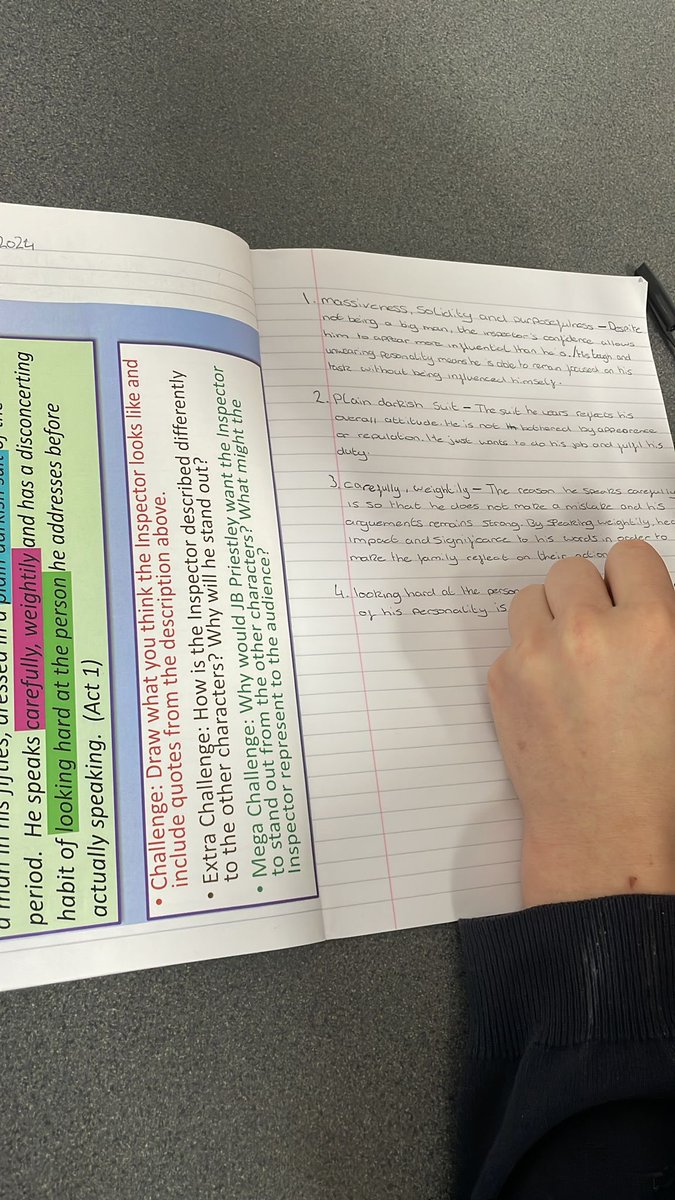 2024
a man in his fifties, dressed in a plain darkish suit of the
period. He speaks carefully, weightily and has a disconcerting
habit of looking hard at the person he addresses before
actually speaking. (Act 1)
• Challenge: Draw what you think the Inspector looks like and
include quotes from the description above.
• Extra Challenge: How is the Inspector described differently
to the other characters? Why will he stand out?
• Mega Challenge: Why would JB Priestley want the Inspector
to stand out from the other characters? What might the
Inspector represent to the audience?
1. massiveness, solidity and purposefulness – Despite
not being a big man, the inspector's confidence allows
him to appear more influential than he is. His tough and
unwearing personality means he is able to remain focused on his
task without being influenced himself.
2. Plain darkish suit – The suit he wears reflects his
overall attitude. He is not bothered by appearence
or reputation. He just wants to do his job and fulfil his
duty.
3. carefully, weightily – The reason he speaks carefully
is so that he does not make a mistake and his
arguements remains strong. By speaking weightily, he
impact and significance to his words in order to
make the family reflect on their actions
4. looking hard at the person
of his personality is